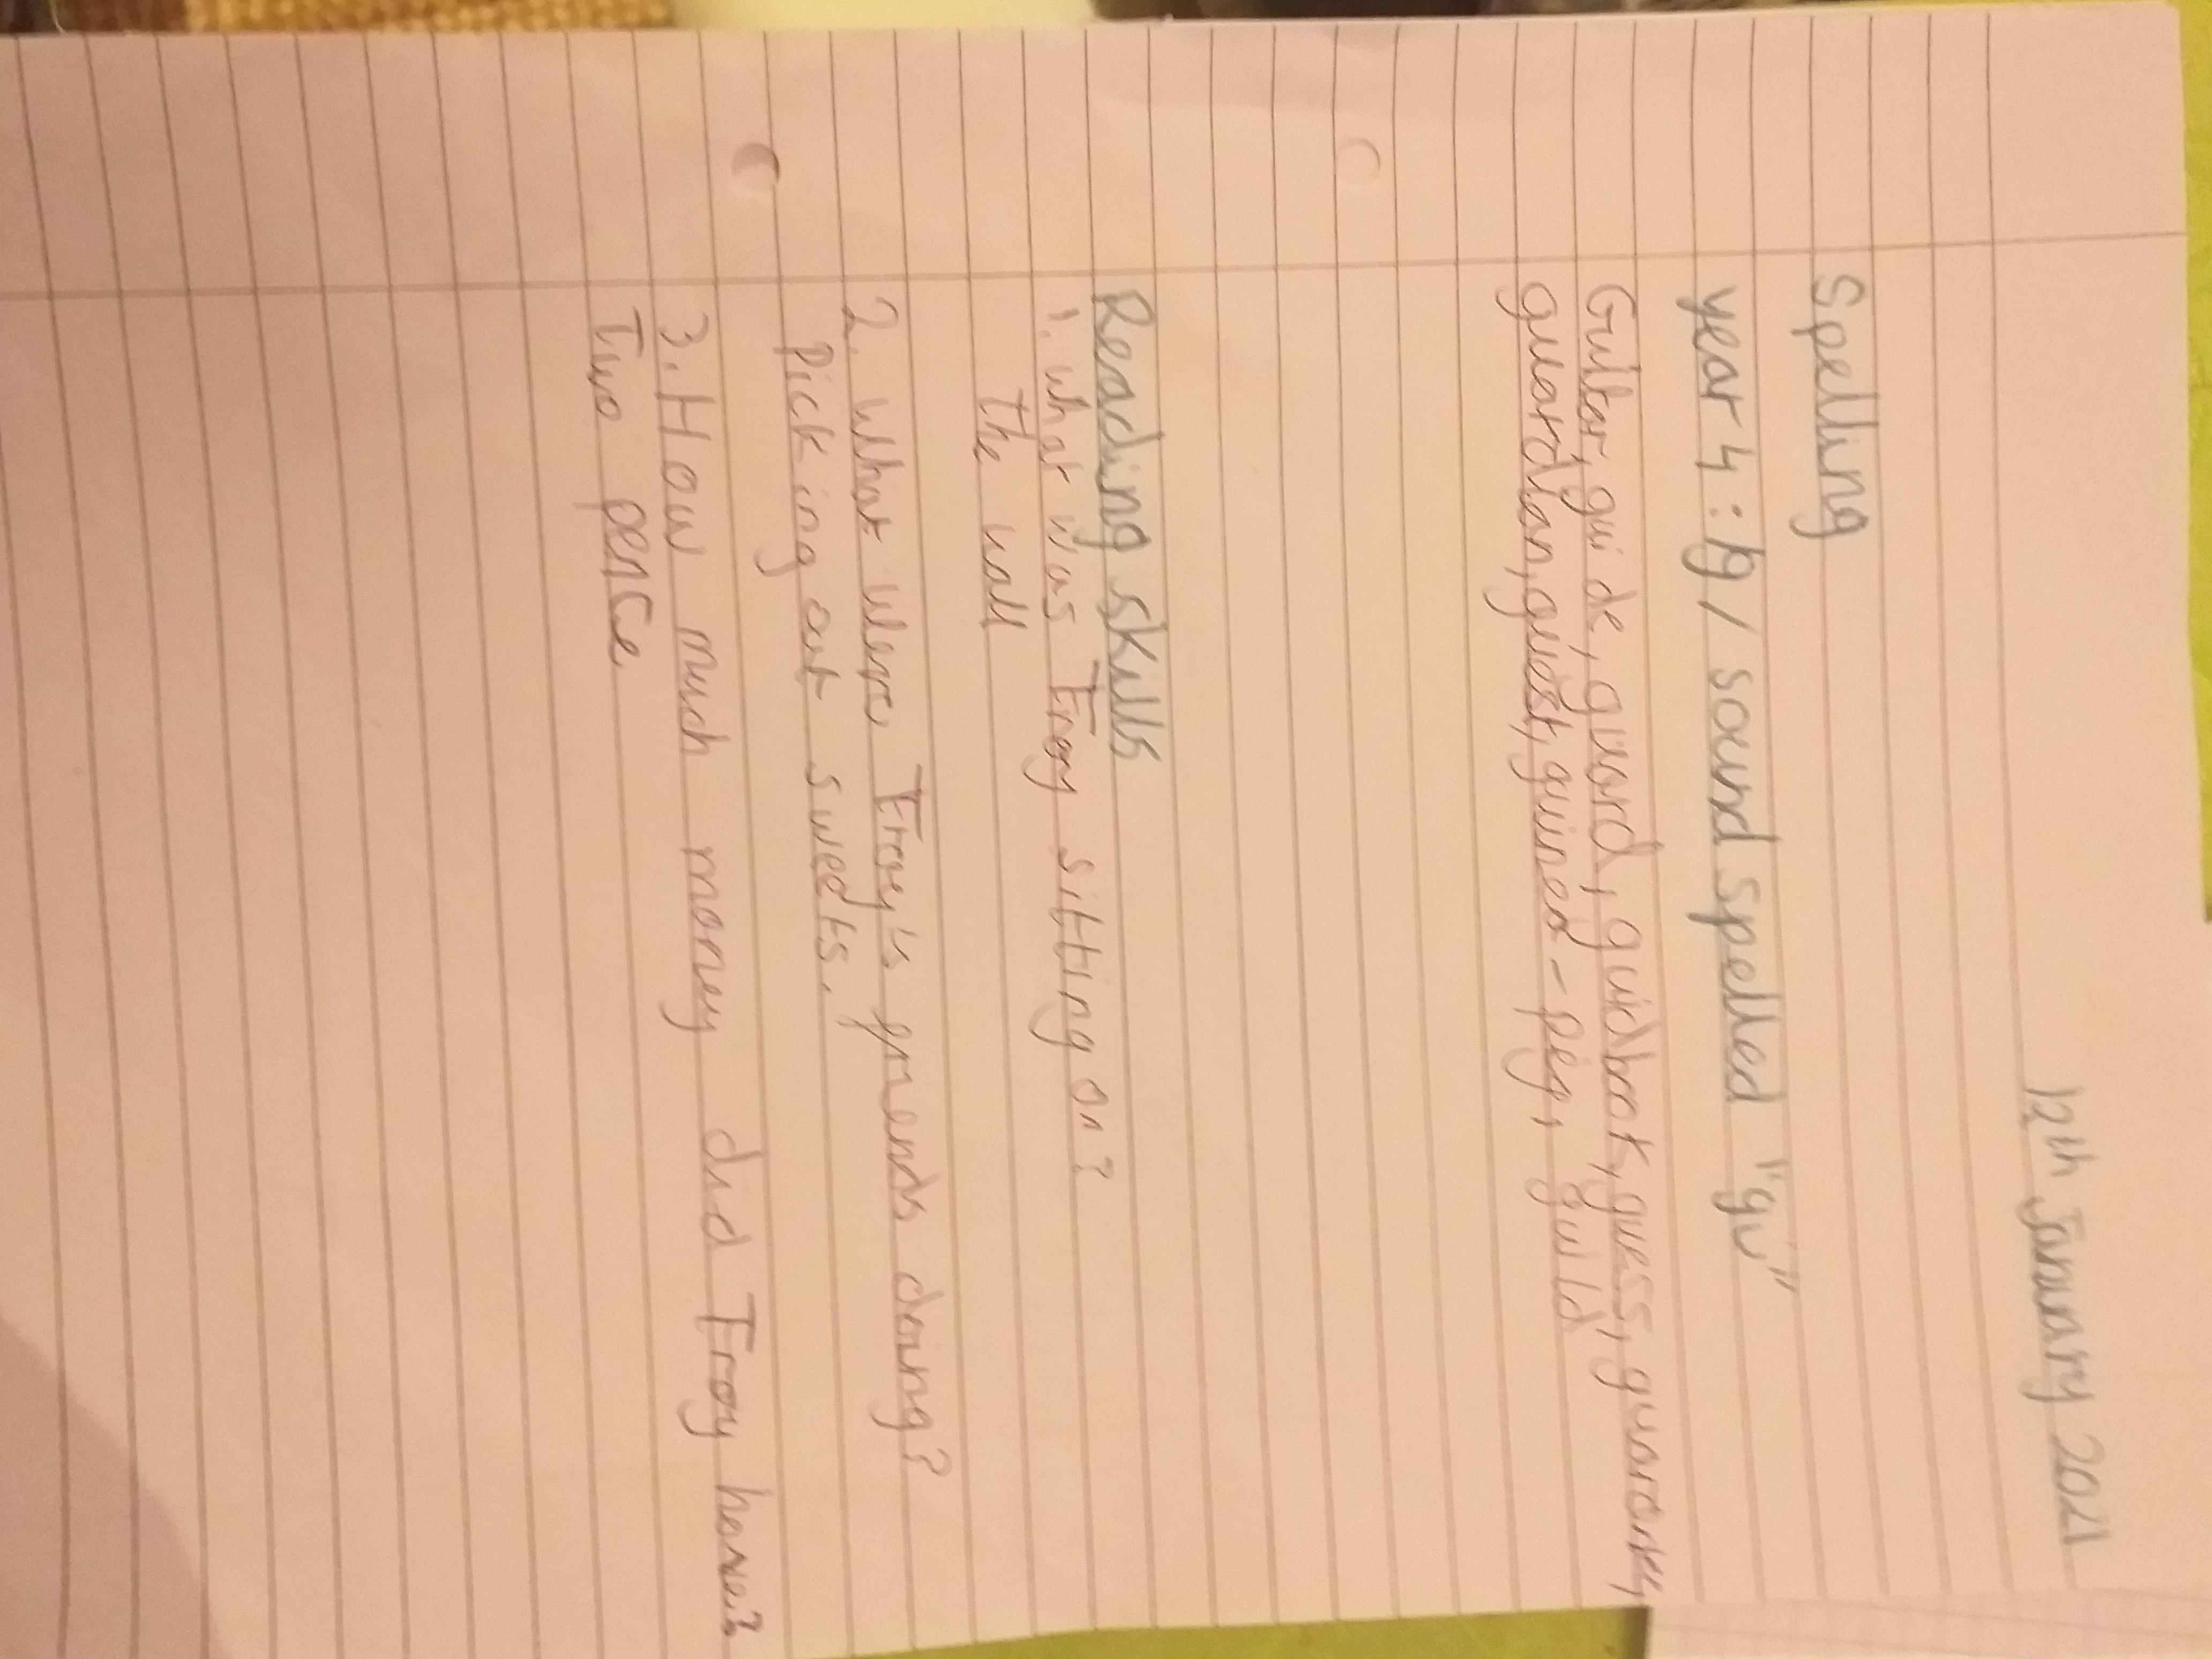 12th January 2021
Spelling
year 4 : /g/ sound spelled "gu"
Guitar, guide, guard, guidbook, guess,
guardian, guest, guinea-peg, guild
Reading skills
1. what was Troy sitting on?
The wall
2. what were Troy's friends doing?
Picking out sweets.
3. How much money did Troy have?
Two pence